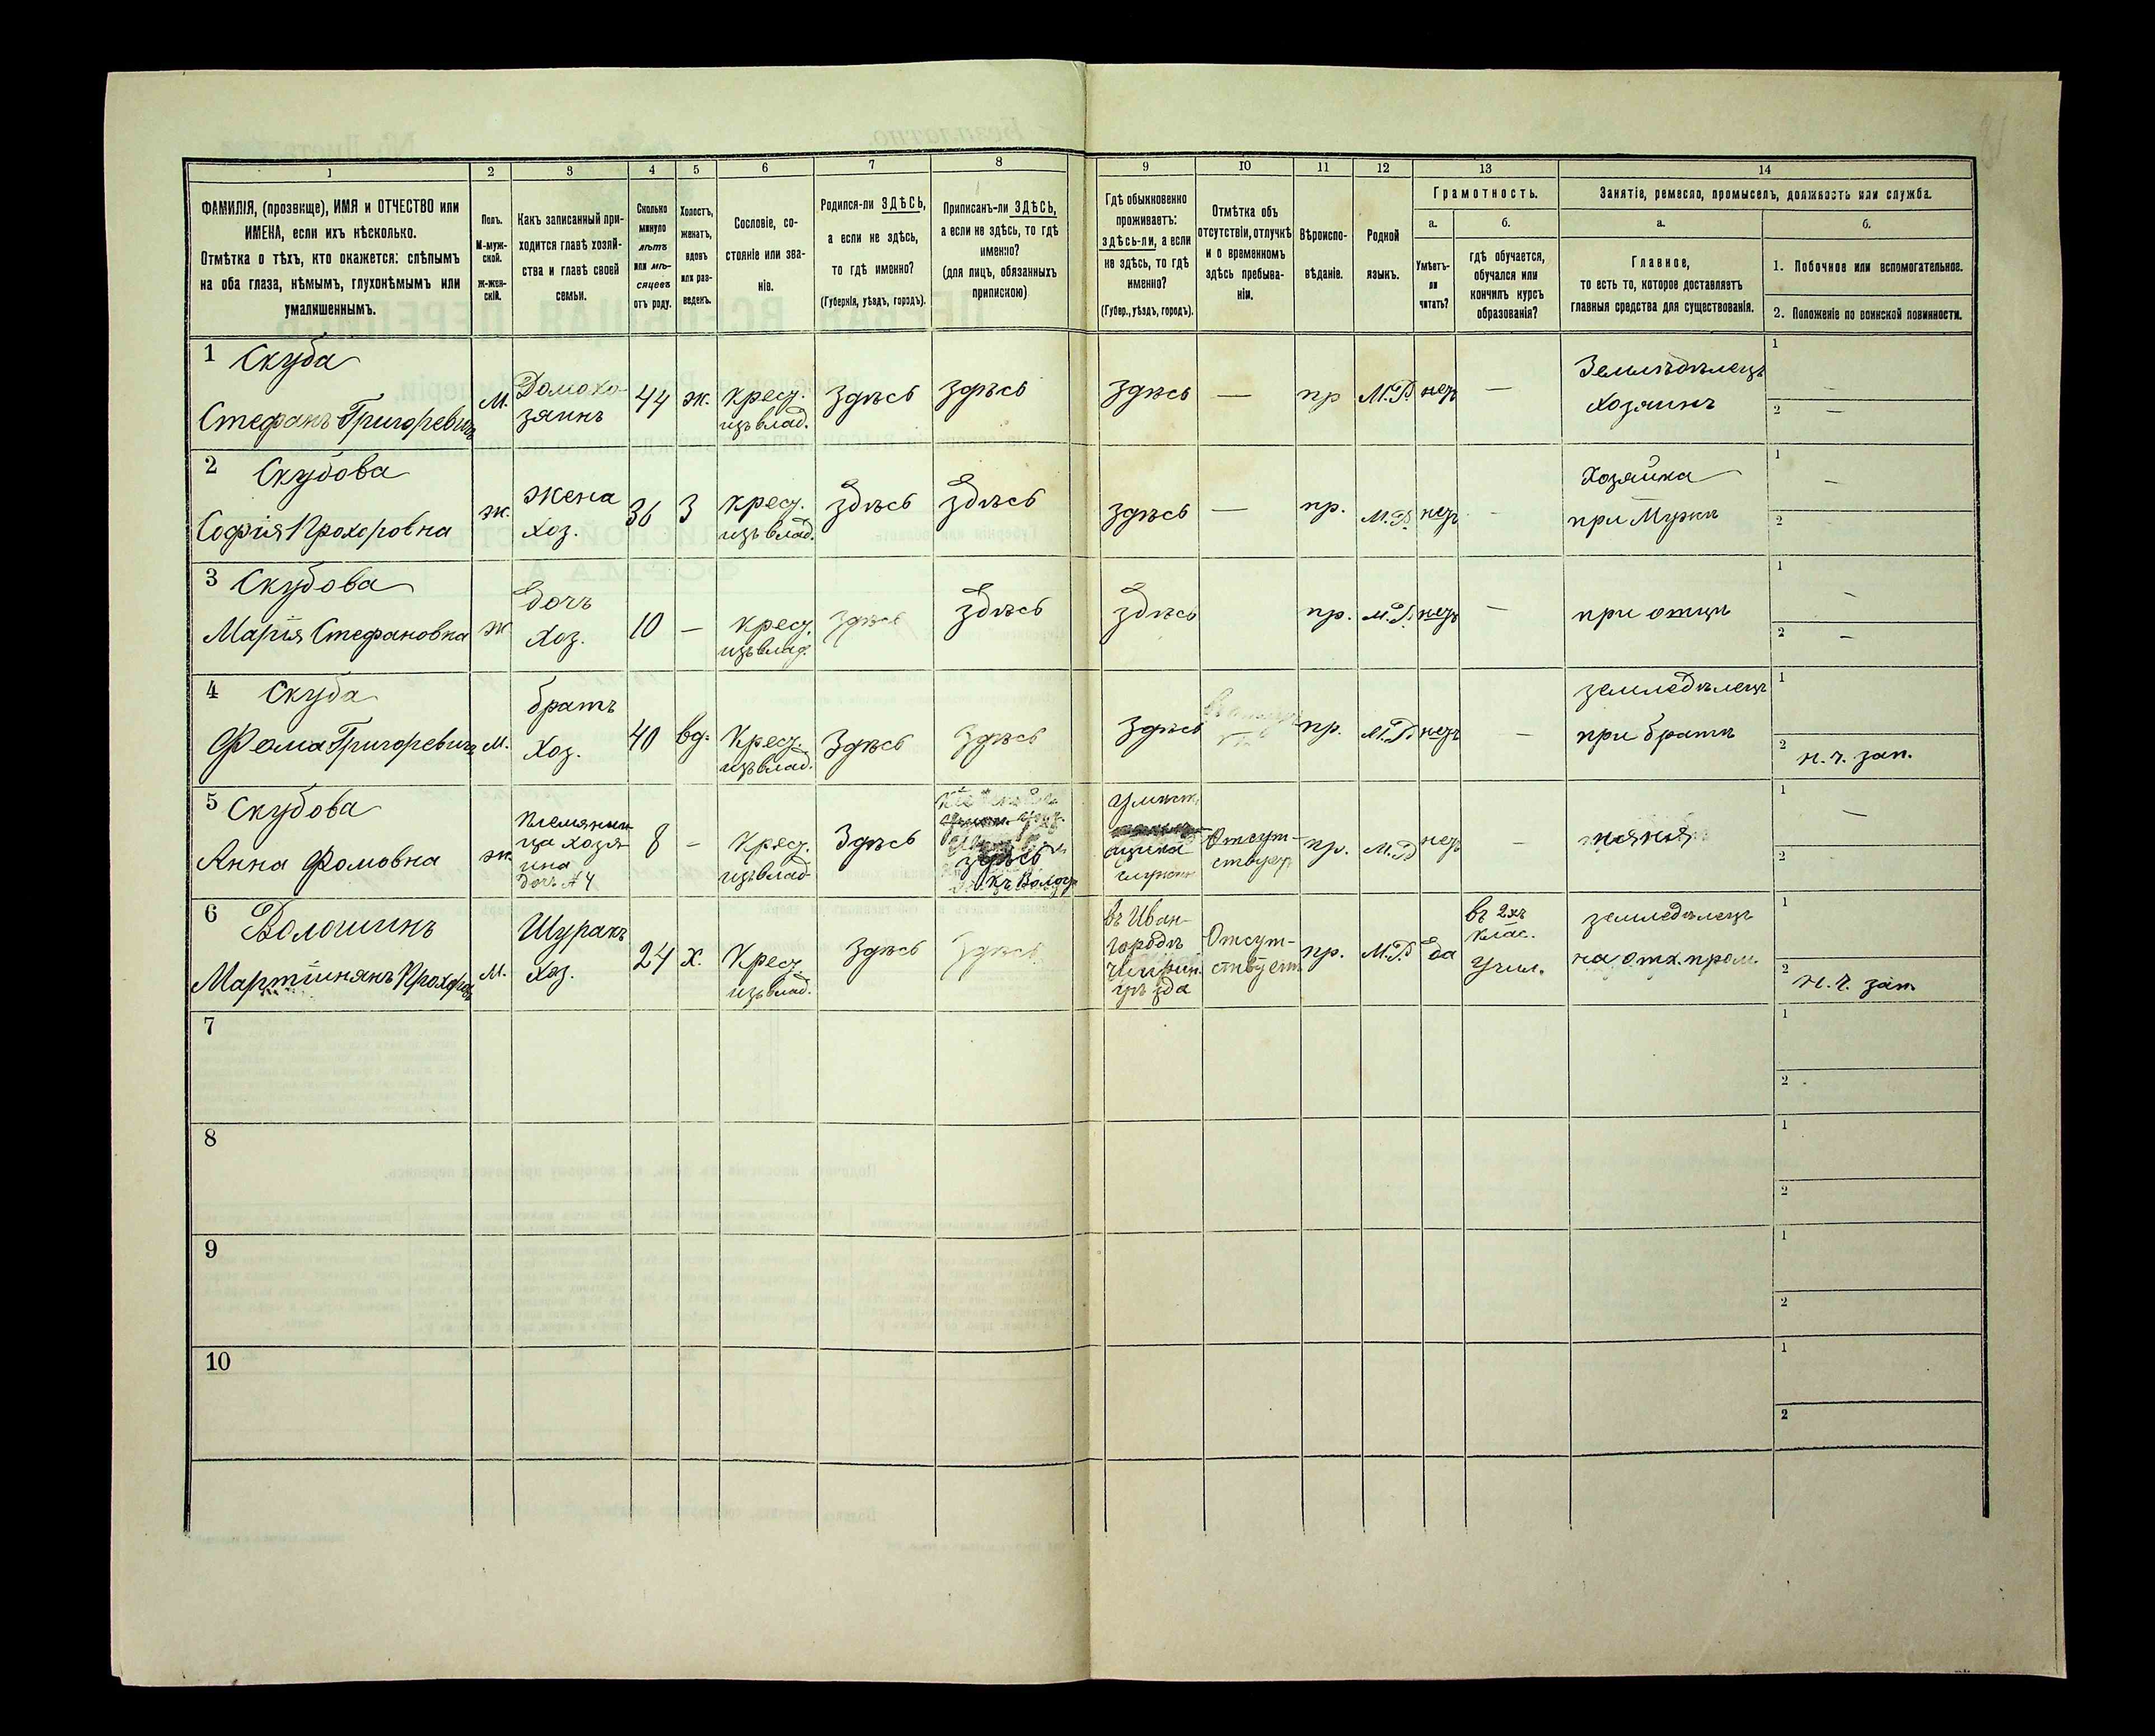 1 2 3 4 5 6 7 8 9 10 11 12 13 14
ФАМИЛІЯ, (прозвище), ИМЯ и ОТЧЕСТВО или
ИМЕНА, если ихъ нѣсколько.
Отмѣтка о тѣхъ, кто окажется: слѣпымъ
на оба глаза, нѣмымъ, глухонѣмымъ или
умалишеннымъ.
Полъ.
М-муж-
ской.
Ж-жен-
скій.
Какъ записанный при-
ходится главѣ хозяй-
ства и главѣ своей
семьи.
Сколько
минуло
лѣтъ
или мѣ-
сяцевъ
отъ роду.
Холостъ,
женатъ,
вдовъ
или раз-
веденъ.
Сословіе, со-
стояніе или зва-
ніе.
Родился-ли ЗДѢСЬ,
а если не здѣсь,
то гдѣ именно?
(Губернія, уѣздъ, городъ).
Приписанъ-ли ЗДѢСЬ,
а если не здѣсь, то гдѣ
именно?
(для лицъ, обязанныхъ
припискою)
Гдѣ обыкновенно
проживаетъ:
здѣсь-ли, а если
не здѣсь, то гдѣ
именно?
(Губер., уѣздъ, городъ).
Отмѣтка объ
отсутствіи, отлучкѣ
и о временномъ
здѣсь пребыва-
ніи.
Вѣроиспо-
вѣданіе.
Родной
языкъ.
Грамотность.
а.
Умѣетъ-
ли
читать?
б.
гдѣ обучается,
обучался или
кончилъ курсъ
образованія?
Занятіе, ремесло, промыселъ, должность или служба.
а.
Главное,
то есть то, которое доставляетъ
главныя средства для существованія.
б.
1. Побочное или вспомогательное.
2. Положеніе по воинской повинности.
1 Скуба
Стефанъ Григоревичъ
м.
Домохо-
зяинъ
44
ж.
крес.
изъ влад.
Здѣсь
здѣсь
здѣсь
—
пр
М.Р.
нетъ
—
Земледѣлецъ
хозяинъ
1 —
2 —
2 Скубова
Софія Прохоровна
ж.
жена
хоз.
36
З
крес.
изъ влад.
здѣсь
здѣсь
здѣсь
—
пр.
М.Р.
нетъ
-
Хозяйка
при Мужѣ
1 —
2 —
3 Скубова
Марія Стефановна
ж
дочь
хоз.
10
—
крес.
изъ влад.
здѣсь
здѣсь
здѣсь
пр.
М.Р.
нетъ
—
при отцѣ
1 —
2 —
4 Скуба
Фома Григоревичъ
м.
братъ
хоз.
40
вд.
Крес.
изъ влад.
Здѣсь
Здѣсь
Здѣсь
пр.
М.Р.
нетъ
—
земледѣлецъ
при братѣ
1
2 н. ч. зап.
5 Скубова
Анна Фомовна
ж.
племянни-
ца хозя-
ина
дочь №4
8
-
Крес.
изъ влад.
Здѣсь
здѣсь
Отсут-
ствуетъ
пр.
М.Р.
нетъ
-
няня
1 —
2
6 Волошинъ
Мартиніянъ Прохоровъ
м.
Шуринъ
хоз.
24
х.
Крес.
изъ влад.
Здѣсь
Здѣсь
въ Иван-
городѣ
Чигирин.
уѣзда
Отсут-
ствуетъ
пр.
М.Р.
да
въ 2хъ
клас.
учил.
земледѣлецъ
на отх. пром.
1
2 н. ч. зап.
7 1
2
8 1
2
9 1
2
10 1
2